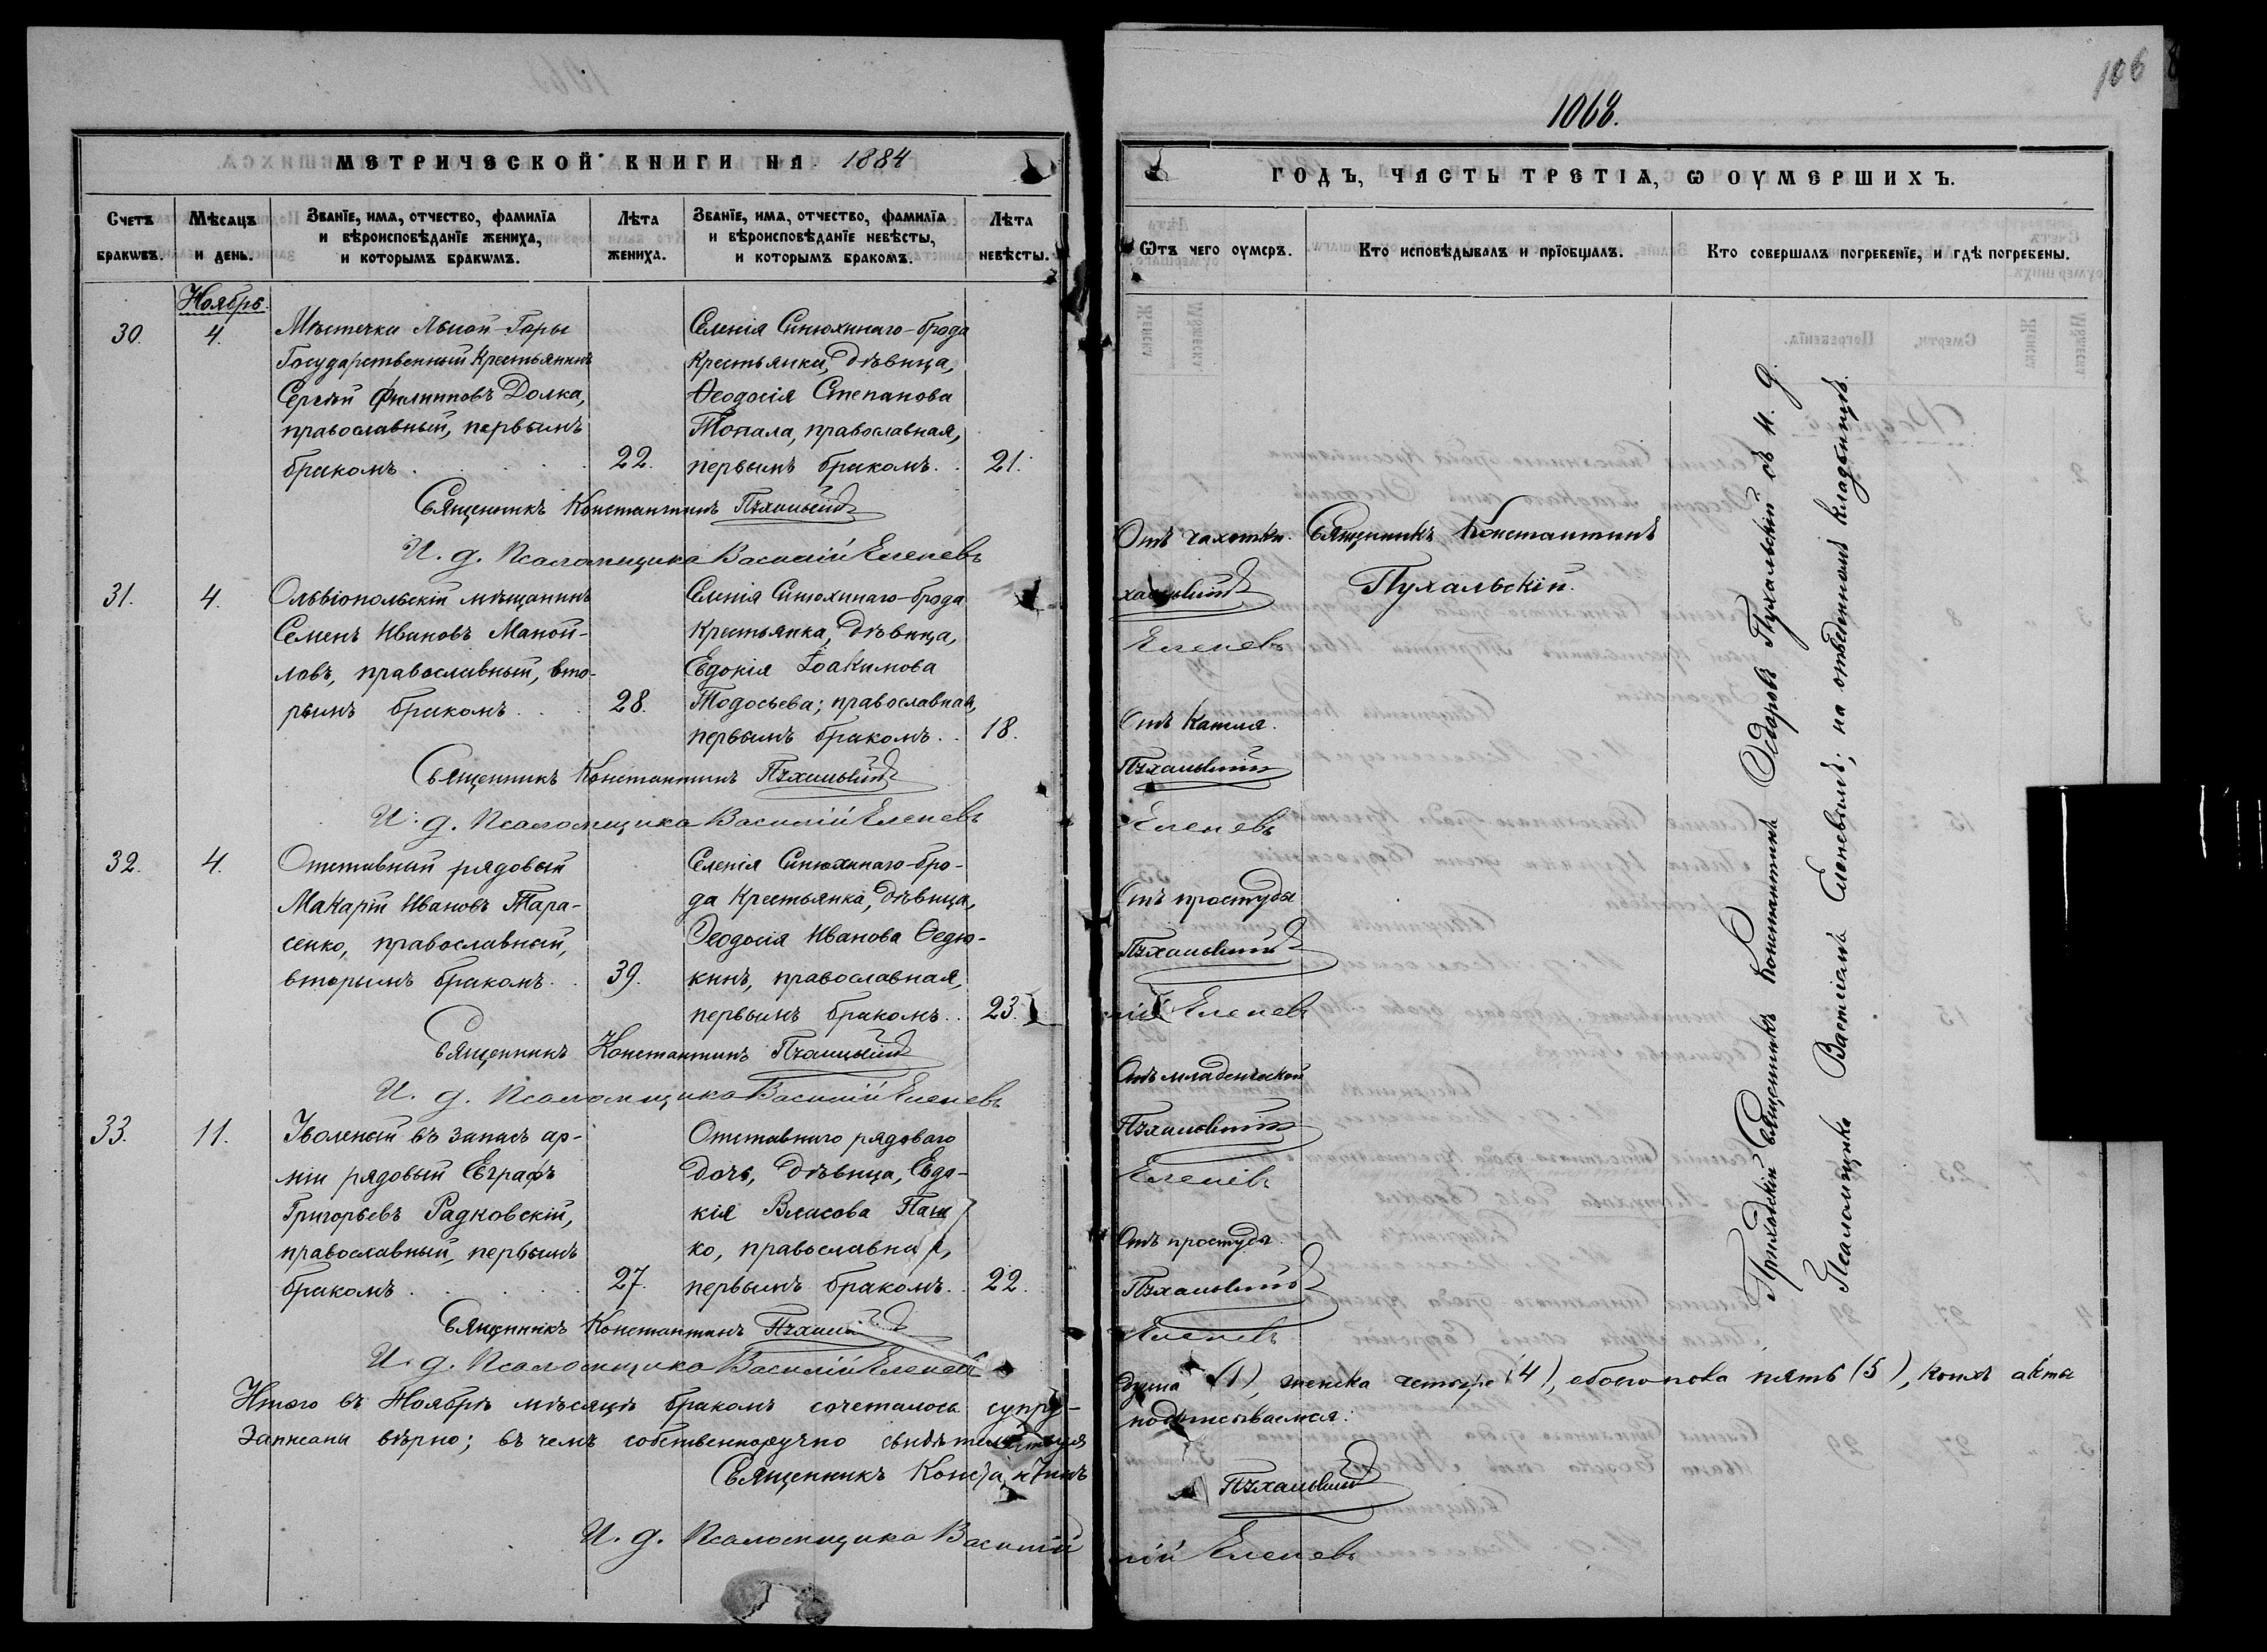 МЕТРИЧЕСКОЙ КНИГИ НА 1884
Счетъ бракѡвъ.
Мѣсяцъ и день.
Званїе, имѧ, отчество, фамилїѧ
и вѣроисповѣданїе жениха,
и которымъ бракѡмъ.
Лѣта жениха.
Званїе, имѧ, отчество, фамилїѧ
и вѣроисповѣданїе невѣсты,
и которымъ бракомъ.
Лѣта невѣсты.
Ноябрь.
30. 4.
Мѣстечка Лысой-Горы
Государственный Крестьянинъ
Сергѣй Филипповъ Долка,
православный, первымъ
бракомъ. 22.
Селенія Синюхинаго-брода
Крестьянка, дѣвица,
Ѳеодосія Степанова
Топала, православная,
первымъ бракомъ. 21.
Священникъ Константинъ Пухальскій
И. д. Псаломщика Василій Еленевъ
31. 4.
Ольвіопольскій мѣщанинъ
Семенъ Ивановъ Маной-
ловъ, православный, вто-
рымъ бракомъ. 28.
Селенія Синюхинаго-брода
Крестьянка, дѣвица,
Евдокія Іоакимова
Тодосьева; православная,
первымъ бракомъ. 18.
Священникъ Константинъ Пухальскій
И. д. Псаломщика Василій Еленевъ
32. 4.
Отставный рядовый
Макарій Ивановъ Тара-
сенко, православный,
вторымъ бракомъ. 39.
Селенія Синюхинаго-бро-
да Крестьянка, дѣвица,
Ѳеодосія Иванова Ѳедю-
кинъ, православная,
первымъ бракомъ. 23.
Священникъ Константинъ Пухальскій
И. д. Псаломщика Василій Еленевъ
33. 11.
Уволеный въ запасъ ар-
міи рядовый Евграфъ
Григорьевъ Радковскій,
православный, первымъ
бракомъ. 27.
Отставнаго рядоваго
дочь, дѣвица, Евдо-
кія Власова Паш
ко, православная,
первымъ бракомъ. 22.
Священникъ Константинъ Пухальскій
И. д. Псаломщика Василій Еленевъ
Итого въ Ноябрѣ мѣсяцѣ бракомъ сочеталось супру-
Записаны вѣрно; въ чемъ собственноручно
Священникъ Константинъ
И. д. Псаломщика Василій
106
1068.
ГОДЪ, ЧАСТЬ ТРЕТІѦ, Ѡ ОУМЕРШИХЪ.
Ѿтъ чего оумеръ.
Кто исповѣдывалъ и прїобщалъ.
Кто совершалъ погребенїе, и гдѣ погребены.
Отъ чахотки. Священникъ Константинъ
хальскій Пухальскій.
Еленевъ
Отъ Кашля.
Пухальскій
Еленевъ
Отъ простуды
Пухальскій
лій Еленевъ
Отъ младенческой
Пухальскій
Еленевъ
Отъ простуды.
Пухальскій
Еленевъ
Приходскій Священникъ Константинъ Пухальскій съ и. д.
Псаломщика Василіемъ Еленевымъ; на отведенномъ кладбищѣ.
(1), женска четыре (4), обоего пола пять (5), коихъ акты
подписываемся:
Пухальскій
лій Еленевъ